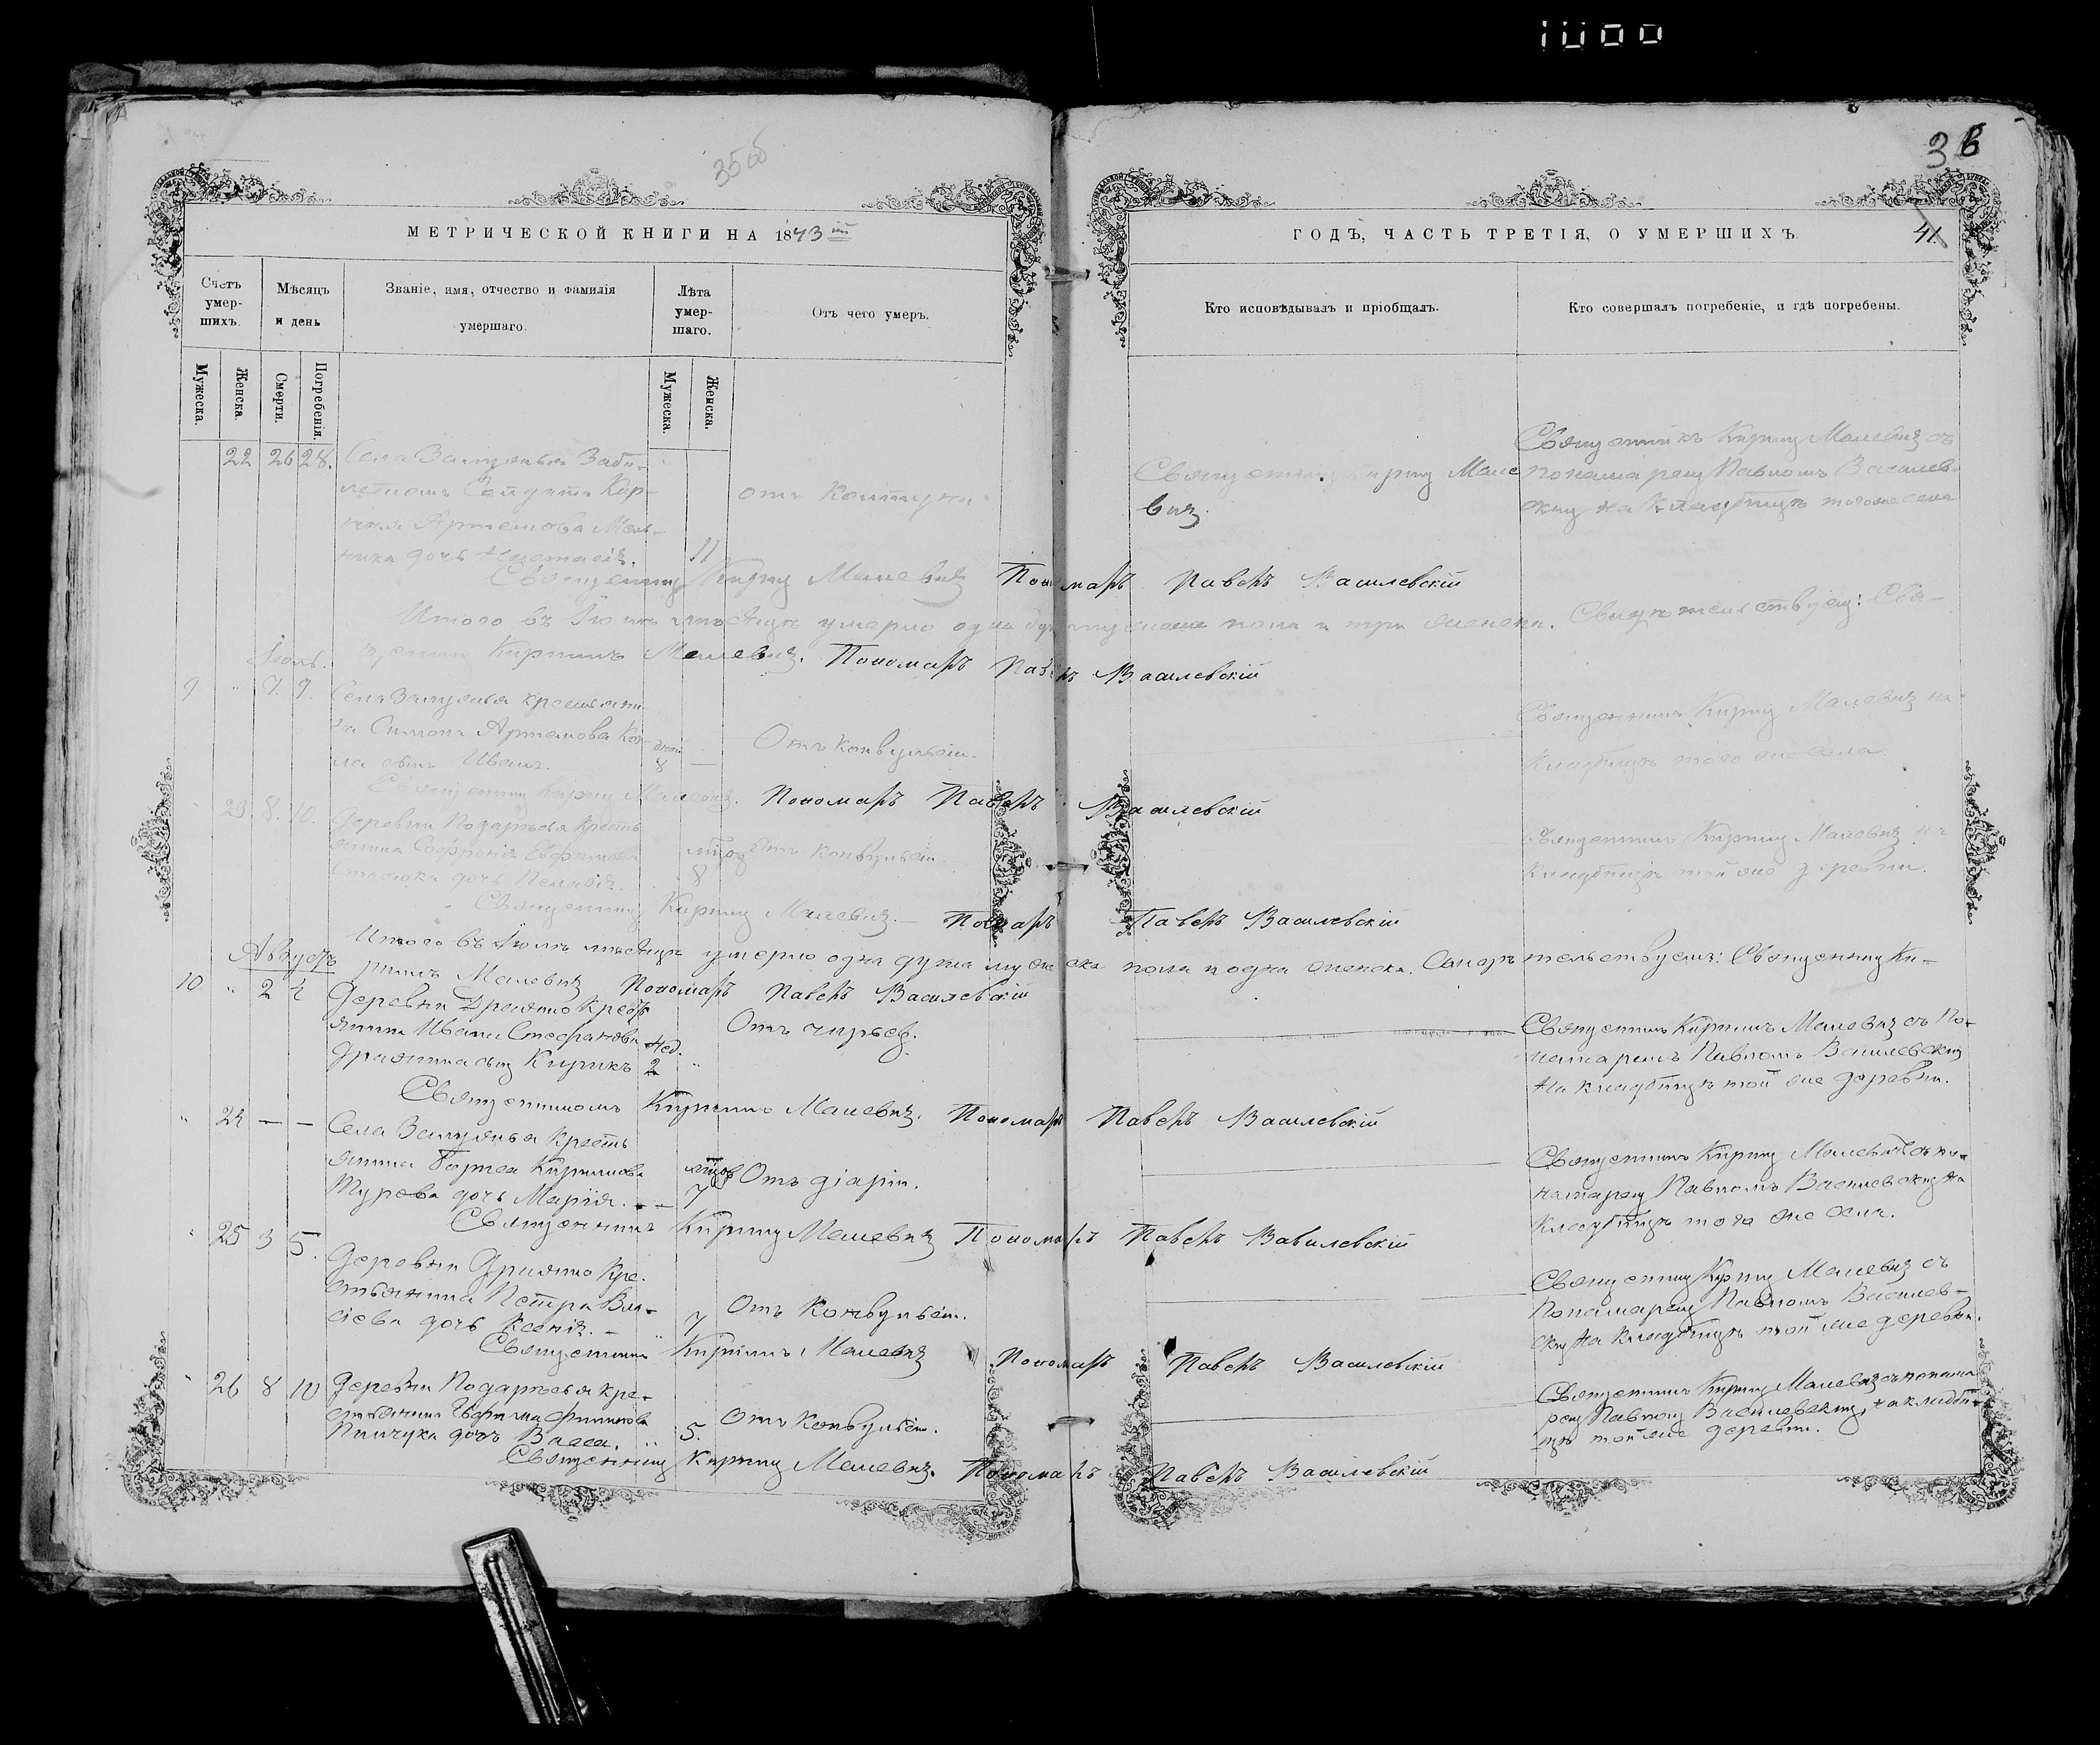 1000
35об
36
МЕТРИЧЕСКОЙ КНИГИ НА 1873 ій
ГОДЪ, ЧАСТЬ ТРЕТІЯ, О УМЕРШИХЪ.
41.
Счетъ умер-шихъ.
Мѣсяцъ и день
Званіе, имя, отчество и фамилія умершаго.
Лѣта умер-шаго.
Отъ чего умеръ.
Кто исповѣдывалъ и пріобщалъ.
Кто совершалъ погребеніе, и гдѣ погребены.
Мужеска.
Женска.
Смерти.
Погребенія.
Мужеска.
Женска.
22 26 28.
Села
11
отъ
Священникъ Кириллъ Малевичъ съ
понамаремъ Павломъ Василев-
на кладбищѣ тогоже села
Священникъ Кириллъ Малевичъ Пономарь Павелъ Василевскій
Итого въ Іюнѣ мѣсяцѣ умерло одна душа мужеска пола и три женска. Свидѣтельствуемъ: Свя-
щенникъ Кириллъ Малевичъ. Пономарь Павелъ Василевскій
Іюль.
9 " 7. 9.
Села крестьяни-
на Симона Артемова
сынъ Иванъ.
дней
8 —
Отъ конвульсіи.
Священникъ Кириллъ Малевичъ на
кладбищѣ того же села.
Священникъ Кириллъ Малевичъ. Пономарь Павелъ Василевскій
23. 8. 10.
Деревни кресть
янина Софронія Евфимова
дочь Пелагія.
8
Отъ конвульсіи.
Священникъ Кириллъ Малевичъ на
кладбищѣ той же деревни.
Священникъ Кириллъ Малевичъ. — Пономарь Павелъ Василевскій
Итого въ Іюлѣ мѣсяцѣ умерло одна душа мужеска пола и одна женска. Свидѣтельствуемъ: Священникъ Ки-
риллъ Малевичъ Пономарь Павелъ Василевскій
Августъ
10 " 2 4
Деревни кресть
янина Ивана Стефанова
сынъ Кирикъ
нед.
2 "
Отъ чирьевъ.
Священникъ Кириллъ Малевичъ съ По-
намаремъ Павломъ Василевскимъ
на кладбищѣ той же деревни.
Священникомъ Кириллъ Малевичъ. Пономарь Павелъ Василевскій
" 24 — —
Села кресть
янина Кириллова
дочь Марія. - —
7
Отъ діаріи.
Священникъ Кириллъ Малевичъ съ по-
намаремъ Павломъ Василевскимъ на
кладбищѣ того же села.
Священникъ Кириллъ Малевичъ Пономарь Павелъ Василевскій
" 25 3 5.
Деревни Кре-
стьянина Петра Вла-
сіева дочь Ксенія. —
" 7
Отъ Конвульсіи.
Священникъ Кириллъ Малевичъ съ
Понамаремъ Павломъ Василев-
на кладбищѣ той же деревни.
Священникъ Кириллъ Малевичъ Пономарь Павелъ Василевскій
" 26 8 10
Деревни кре-
стьянина
дочь Васса.
" 5.
Отъ Конвульсіи.
Священникъ Кириллъ Малевичъ съ понама
ремъ Павломъ Василевскимъ, на кладби-
щѣ той же деревни.
Священникъ Кириллъ Малевичъ. Пономарь Павелъ Василевскій